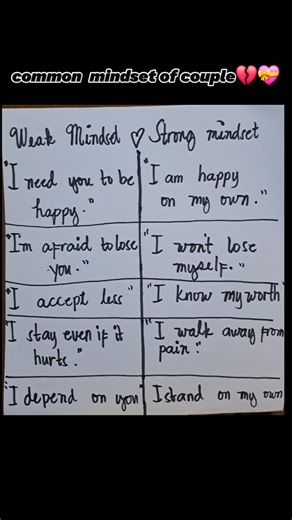 common mindset of couple💔💝
Weak Mindsd ♡ Strong mindset
"I need you to be
happy."
"I am happy
on my own."
"I'm afraid to lose
you."
"I won't lose
myself."
"I accept less"
"I know my worth"
"I stay even if it
hurts."
"I walk away from
pain."
"I depend on you"
I stand on my own